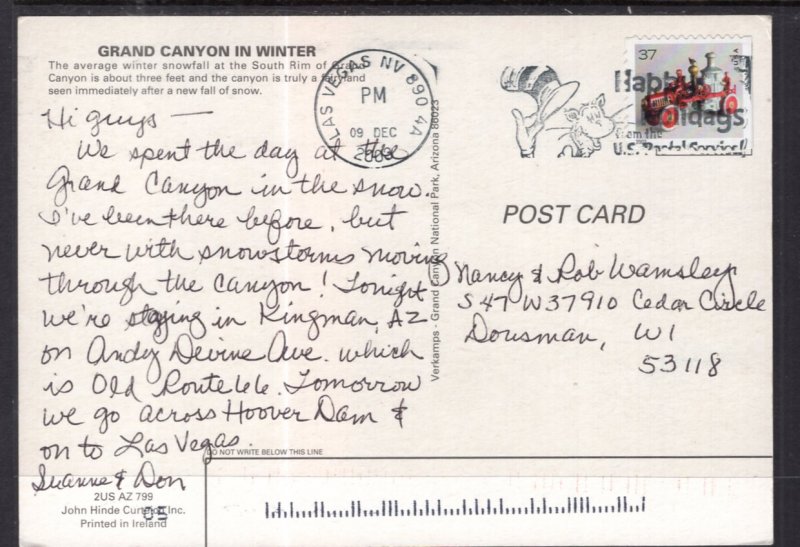 GRAND CANYON IN WINTER
The average winter snowfall at the South Rim of Grand
Canyon is about three feet and the canyon is truly a fairyland
seen immediately after a new fall of snow.
Hi guys —
We spent the day at the
Grand Canyon in the snow.
I've been there before, but
never with snowstorms moving
through the canyon! Tonight
we're staying in Kingman, AZ
on Andy Devine Ave. which
is Old Route 66. Tomorrow
we go across Hoover Dam &
on to Las Vegas.
Suanne & Don
2US AZ 799
John Hinde Curteich Inc.
Printed in Ireland
DO NOT WRITE BELOW THIS LINE
Verkamps - Grand Canyon National Park, Arizona 86023
LAS VEGAS NV 890 4A
PM
09 DEC
2003
37
USA
Happy
Holidays
from the
U.S. Postal Service!!
POST CARD
Nancy & Rob Wamsley
S 47 W37910 Cedar Circle
Dousman, WI
53118